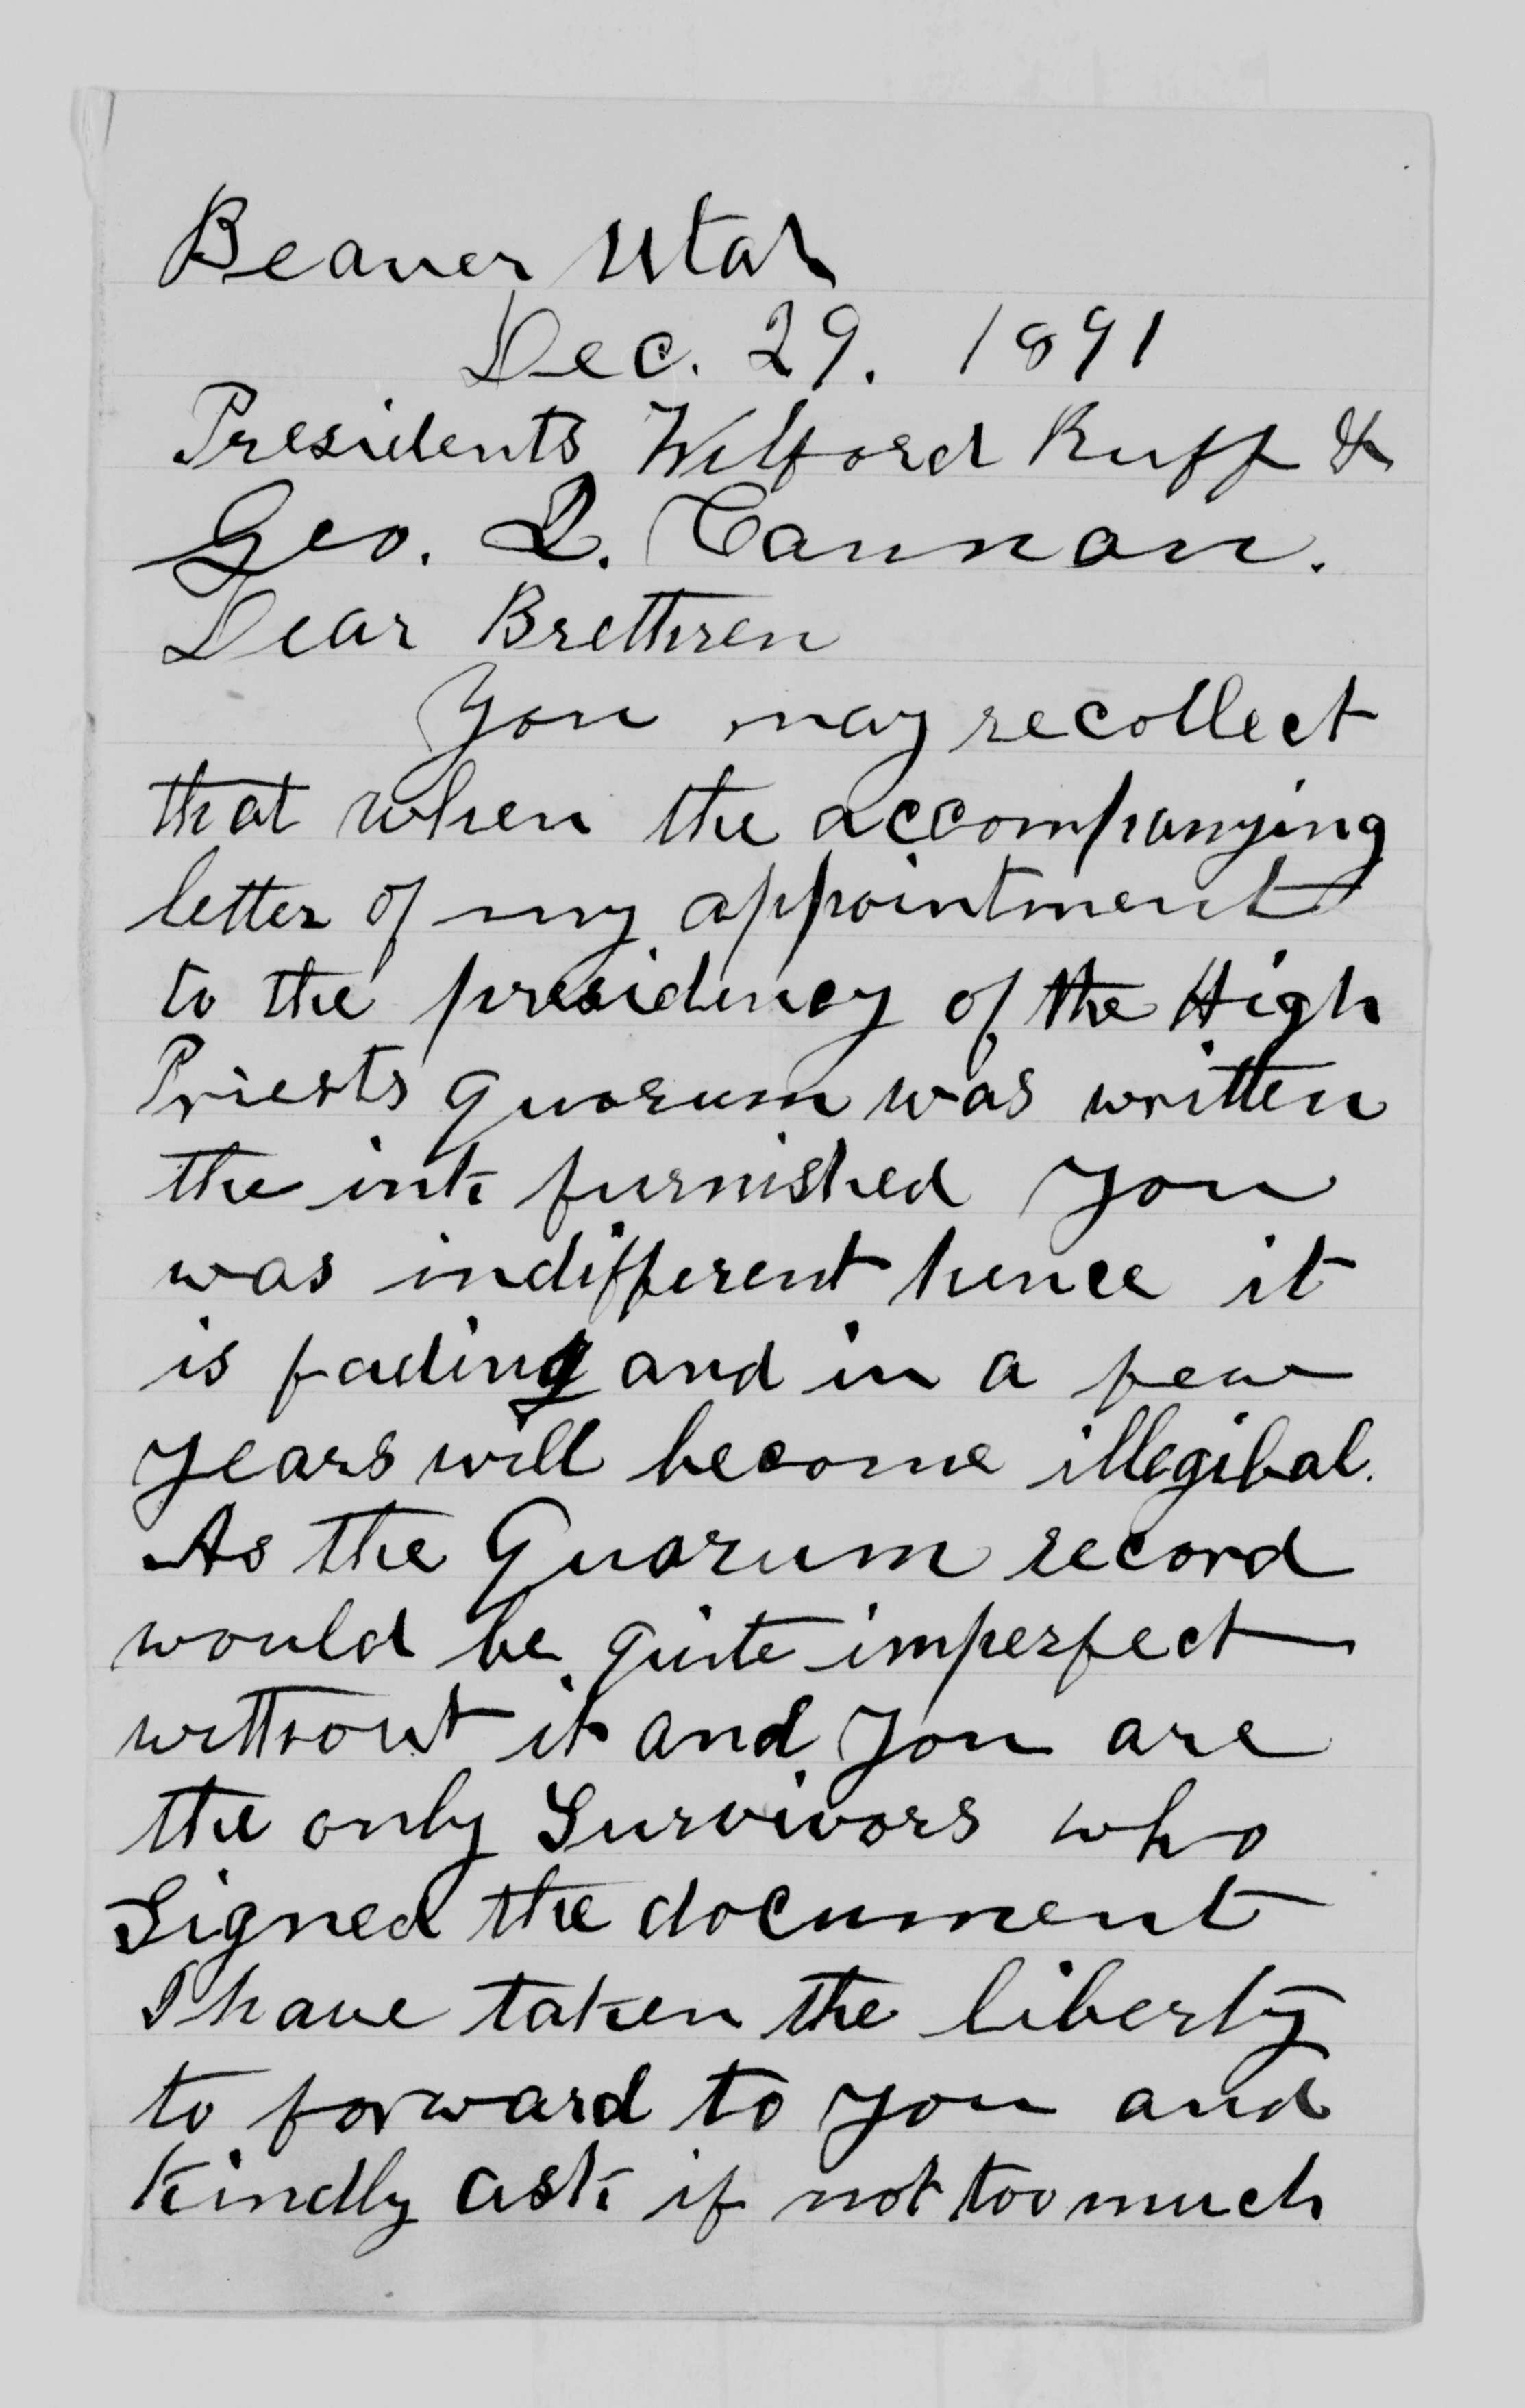 Beaver Utah
Dec. 29. 1891
Presidents Wilford Ruff &
Geo. Q. Cannon.
Dear Brethren
You may recollect
that when the accompanying
letter of my appointment
to the presidency of the High
Priests quorum was written
the ink furnished you
was indifferent hence it
is fading and in a few
years will become illegibal.
As the Quorum record
would be quite imperfect
without it and you are
the only Survivors who
Signed the document
I have taken the liberty
to forward to you and
kindly ask if not too much